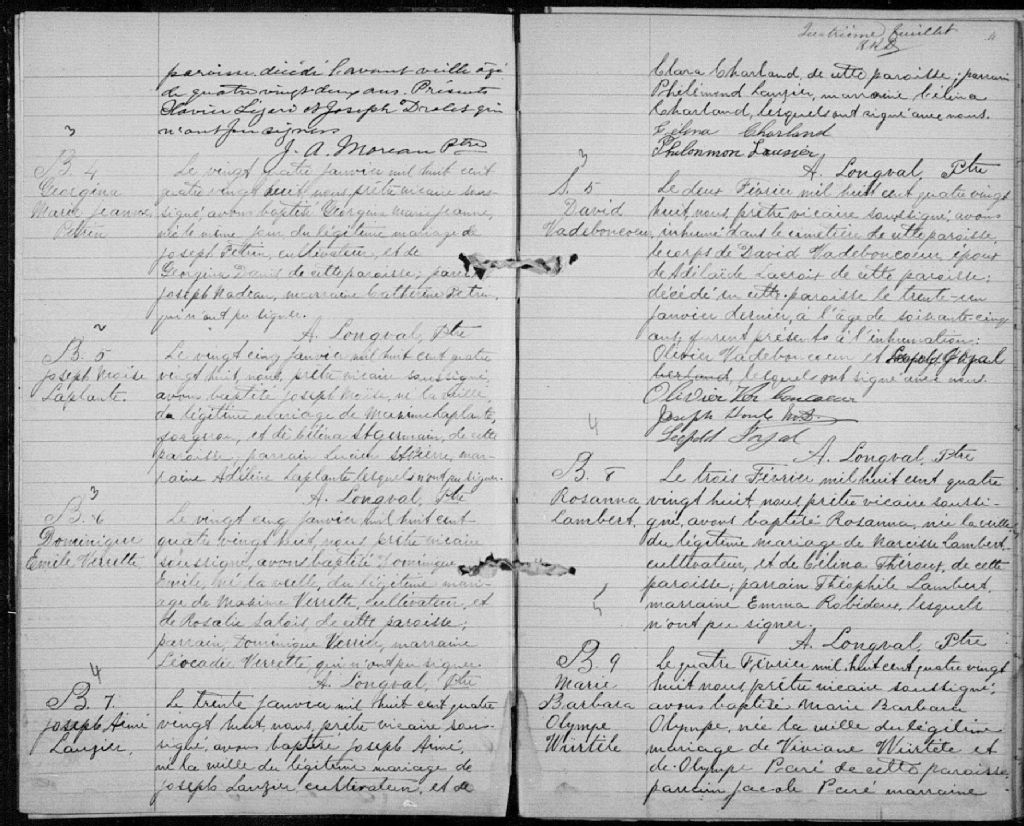 paroisse décédé l'avant veille âgé
de quatre vingt deux ans. Présents
Xavier et Joseph Drolet qui
n'ont pu signer.
J. A. Moreau Ptre
3
B. 4
Georgina
Marie Jeanne
Petrin
Le vingt quatre Janvier mil huit cent
quatre vingt huit nous prêtre vicaire sous-
signé, avons baptisé Georgina Marie Jeanne,
née le même jour, du légitime mariage de
Joseph Petrin, cultivateur, et de
Georgina Danis de cette paroisse; parrain
Joseph Nadeau, marraine Catherine Petrin,
qui n'ont pu signer.
A. Longval, Ptre
B. 5
Joseph Moïse
Laplante.
Le vingt cinq Janvier mil huit cent quatre
vingt huit, nous, prêtre vicaire soussigné,
avons baptisé Joseph Moïse, né la veille,
du légitime mariage de Maxime Laplante,
forgeron, et de Célina St Germain, de cette
paroisse; parrain Lucien St Pierre, mar-
raine Adéline Laplante lesquels n'ont pu signer.
A. Longval, Ptre
3
B. 6
Dominique
Emile Verrette.
Le vingt cinq Janvier mil huit cent
quatre vingt huit, nous, prêtre vicaire
soussigné, avons baptisé Dominique
Emile, né la veille, du légitime mari-
age de Maxime Verrette, cultivateur, et
de Rosalie Salois, de cette paroisse;
parrain, Dominique marraine
Léocadie Verrette, qui n'ont pu signer.
A. Longval, Ptre
4
B. 7.
Joseph Aimé
Lauzier,
Le trente Janvier mil huit cent quatre
vingt huit, nous, prêtre vicaire sous-
signé, avons baptisé Joseph Aimé,
né la veille du légitime mariage de
Joseph Lauzier, cultivateur, et de
feuillet
Clara Charland, de cette paroisse; parrain
Philémond Lauzier, marraine Célina
Charland, lesquels ont signé avec nous.
Célina Charland
Philonmon Lausier
A. Longval, Ptre
3
S. 5
David
Vadeboncoeur,
Le deux Février mil huit cent quatre vingt
huit, nous prêtre vicaire soussigné, avons
inhumé dans le cimetière de cette paroisse,
le corps de David Vadeboncoeur, époux
de Adélaïde Lacroix de cette paroisse;
décédé en cette paroisse le trente-un
Janvier dernier, à l'âge de soixante-cinq
ans, furent présents à l'inhumation:
Olivier Vadeboncoeur et
lesquels ont signé avec nous.
Olivier
Joseph
4
A. Longval, Ptre
B. 8
Rosanna
Lambert,
Le trois Février mil huit cent quatre
vingt huit, nous prêtre vicaire soussi-
gné, avons baptisé Rosanna, née la veille
du légitime mariage de Narcisse Lambert,
cultivateur, et de Célina Théroux, de cette
paroisse; parrain Théophile Lambert,
marraine Emma Robidoux, lesquels
n'ont pu signer.
5
A. Longval, Ptre
B. 9
Marie
Barbara
Olympe
Wirtile
Le quatre Février mil huit cent quatre vingt
huit nous prêtre vicaire soussigné,
avons baptisé Marie Barbara
Olympe, née la veille du légitime
mariage de Viviane Wirtele et
de Olympe Paré de cette paroisse,
parrain Jacob Paré marraine